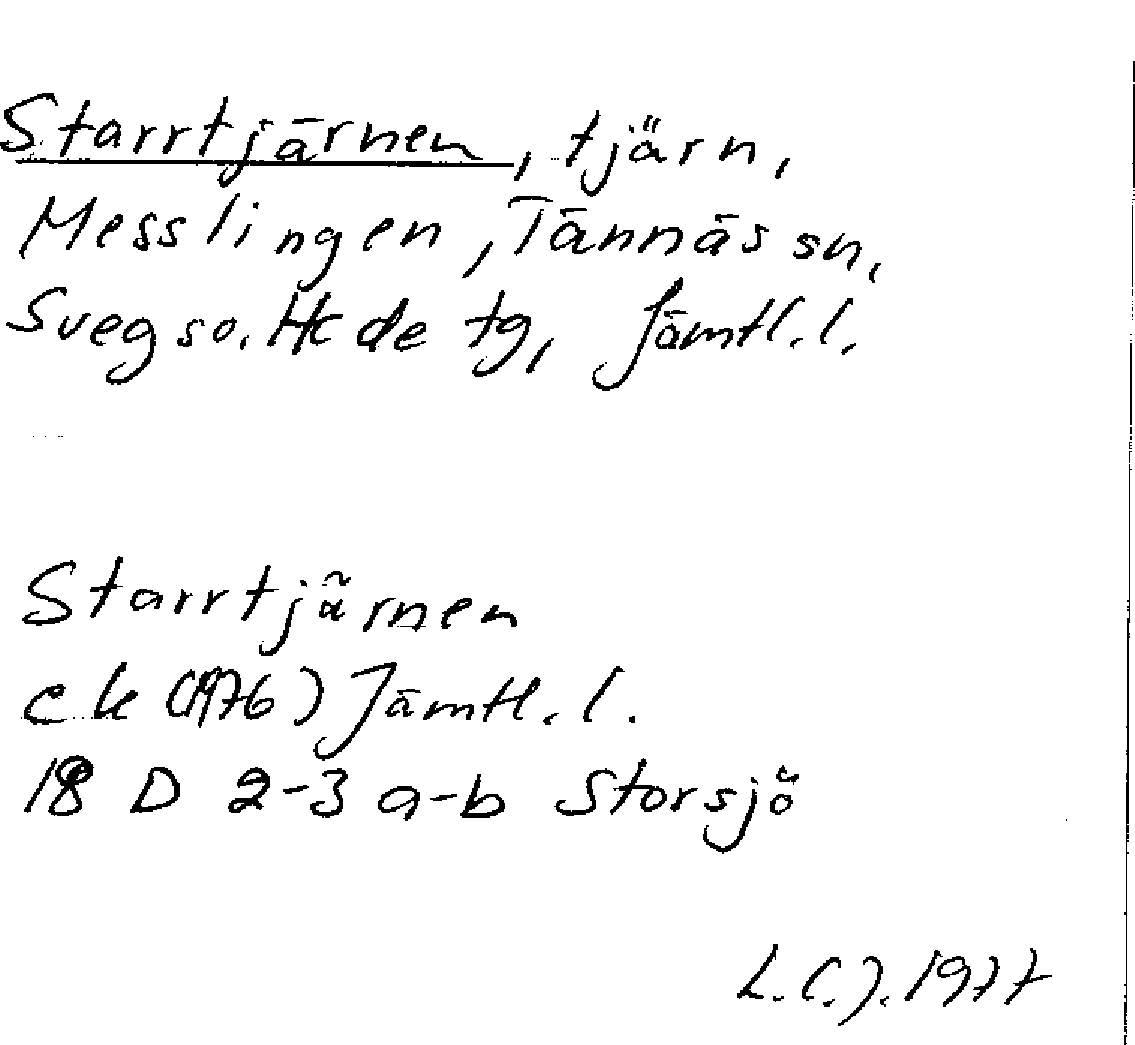 Starrtjärnen, tjärn,
Messlingen, Tännäs sn,
Svegs o. Hede tg, Jämtl. l.
Starrtjärnen
e.k (1976) Jämtl. l.
18 D 2-3 a-b Storsjö
L.C.J. 1977